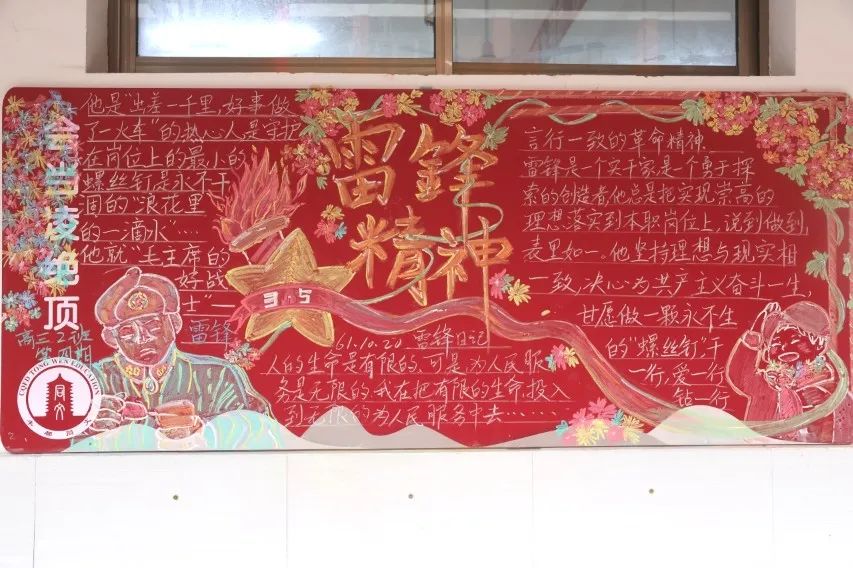 会当凌绝顶
他是"出差一千里,好事做
了一火车"的热心人是守护
在岗位上的最小的
螺丝钉是永不干
涸的"浪花里
的一滴水"…
他就"毛主席的
好战
士"—
雷锋
高三2班
第四期
雷鋒
精神
35
61.10.20 雷锋日记
人的生命是有限的,可是,为人民服
务是无限的,我在把有限的生命,投入
到无限的为人民服务中去……
言行一致的革命精神
雷锋是一个实干家,是一个勇于探
索的创造者,他总是把实现崇高的
理想落实到本职岗位上,说到做到,
表里如一。他坚持理想与现实相
一致,决心为共产主义奋斗一生,
甘愿做一颗永不生
的"螺丝钉"干
一行,爱一行
钻一行
WEN EDUCATION
同文